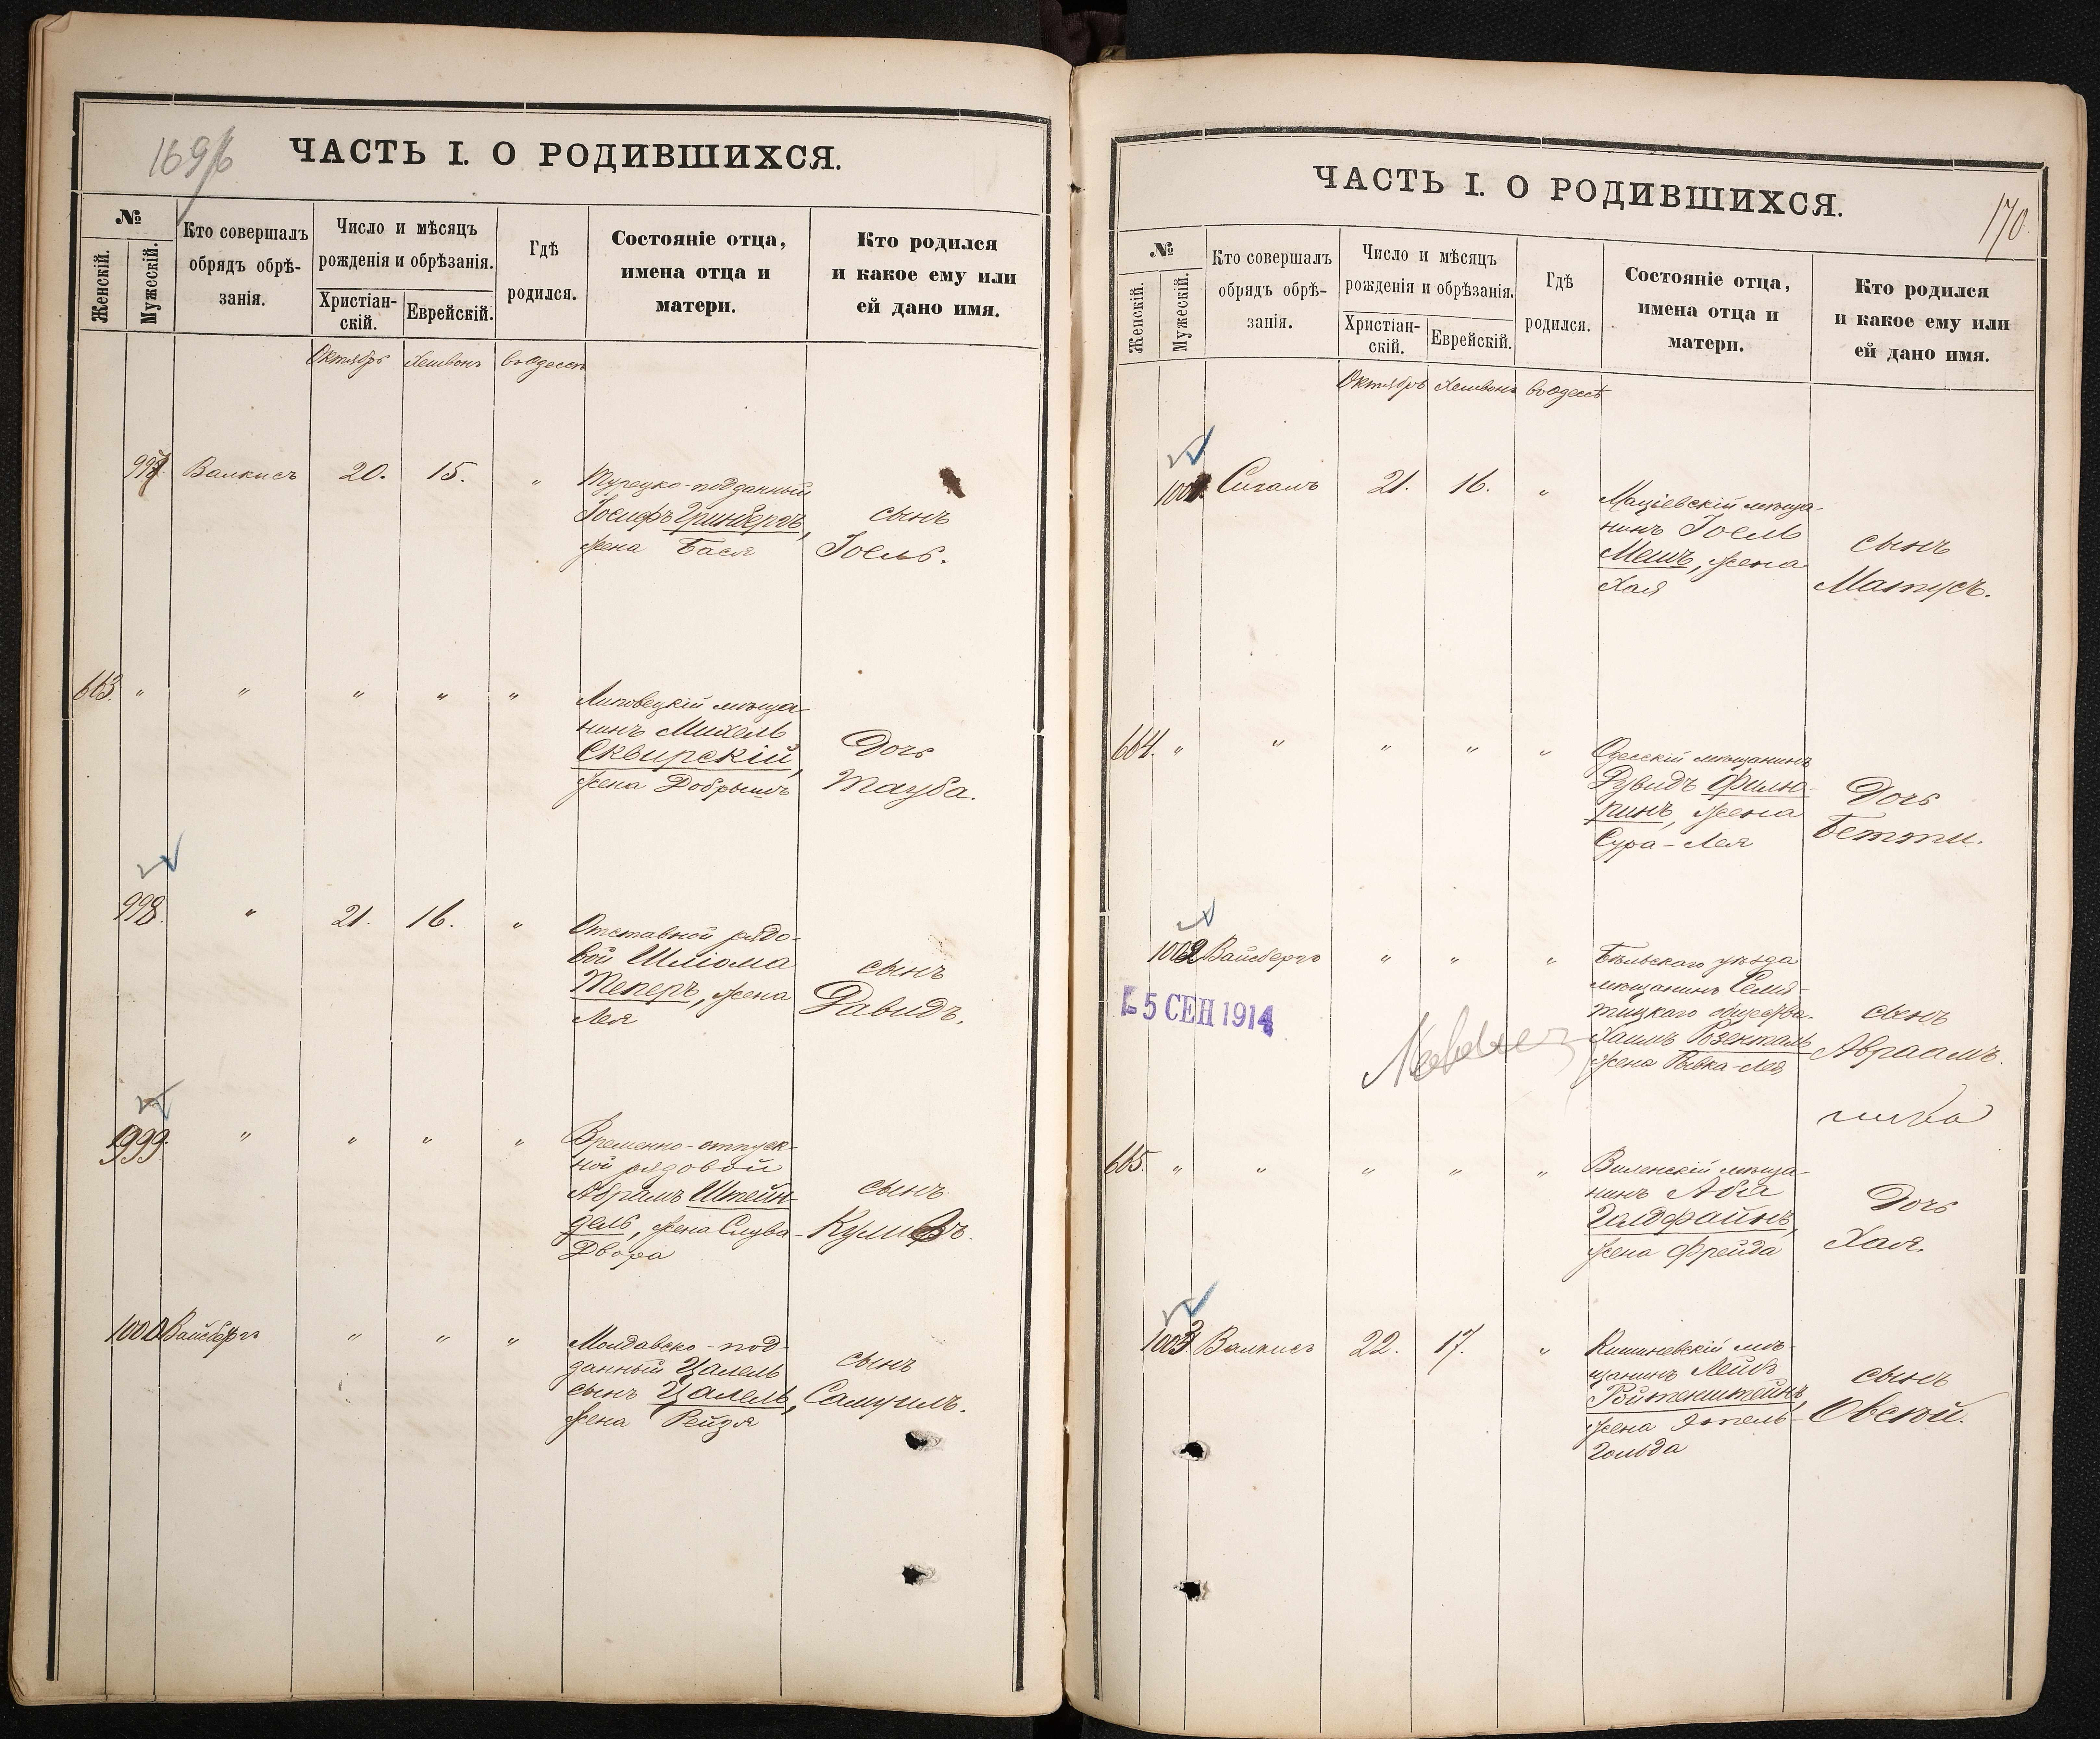 ЧАСТЬ I. О РОДИВШИХСЯ.
№
Женскій.
Мужескій.
Кто совершалъ
обрядъ обрѣ-
занія.
Число и мѣсяцъ
рожденія и обрѣзанія.
Христіан-
скій.
Еврейскій.
Гдѣ
родился.
Состояніе отца,
имена отца и
матери.
Кто родился
и какое ему или
ей дано имя.
Октябрь Хешвонъ въ Одессѣ
997. Валкисъ 20. 15. "
Турецко-подданный
Іосифъ Гринбергъ,
жена Бася
сынъ
Іоель.
663. " " " " "
Липовецкій мѣща-
нинъ Михель
Сквирскій,
жена Добрышъ
Дочь
Тауба.
998. " 21. 16. "
Отставной рядо-
вой Шліома
Теперъ, жена
Лея
сынъ
Давидъ.
999. " " " "
Временно-отпуск-
ной рядовой
Абрамъ Штейн-
дель, жена Слува-
Двора
сынъ
1000 Вайсбергъ " " "
Молдавско-под-
данный Цалель
сынъ Цалель,
жена Рейзя
сынъ
Самуилъ.
ЧАСТЬ I. О РОДИВШИХСЯ.
170.
№
Женскій.
Мужескій.
Кто совершалъ
обрядъ обрѣ-
занія.
Число и мѣсяцъ
рожденія и обрѣзанія.
Христіан-
скій.
Еврейскій.
Гдѣ
родился.
Состояніе отца,
имена отца и
матери.
Кто родился
и какое ему или
ей дано имя.
Октябрь Хешвонъ въ Одессѣ
1001. Сигалъ 21. 16. "
Маціевскій мѣща-
нинъ Іоель
Мешъ, жена
Хая
сынъ
Матусъ.
664. " " " " "
Одесскій мѣщанинъ
Дувидъ Филю-
ринъ, жена
Сура-Лея
Дочь
Бетти.
1002 Вайсбергъ " " "
Бѣльскаго уѣзда
мѣщанинъ Семя-
тицкаго общества
Хаимъ Розенталь
жена Ривка-Лея
сынъ
Авраамъ.
5 СЕН 1914
665. " " " " "
Виленскій мѣща-
нинъ Аба
Гелдфайнъ,
жена Фрейда
Дочь
Хая.
1003 Валкисъ 22. 17. "
Кишиневскій мѣ-
щанинъ Лейбъ
Ройтенштейнъ,
жена Этель-
Гольда
сынъ
Овсѣй.